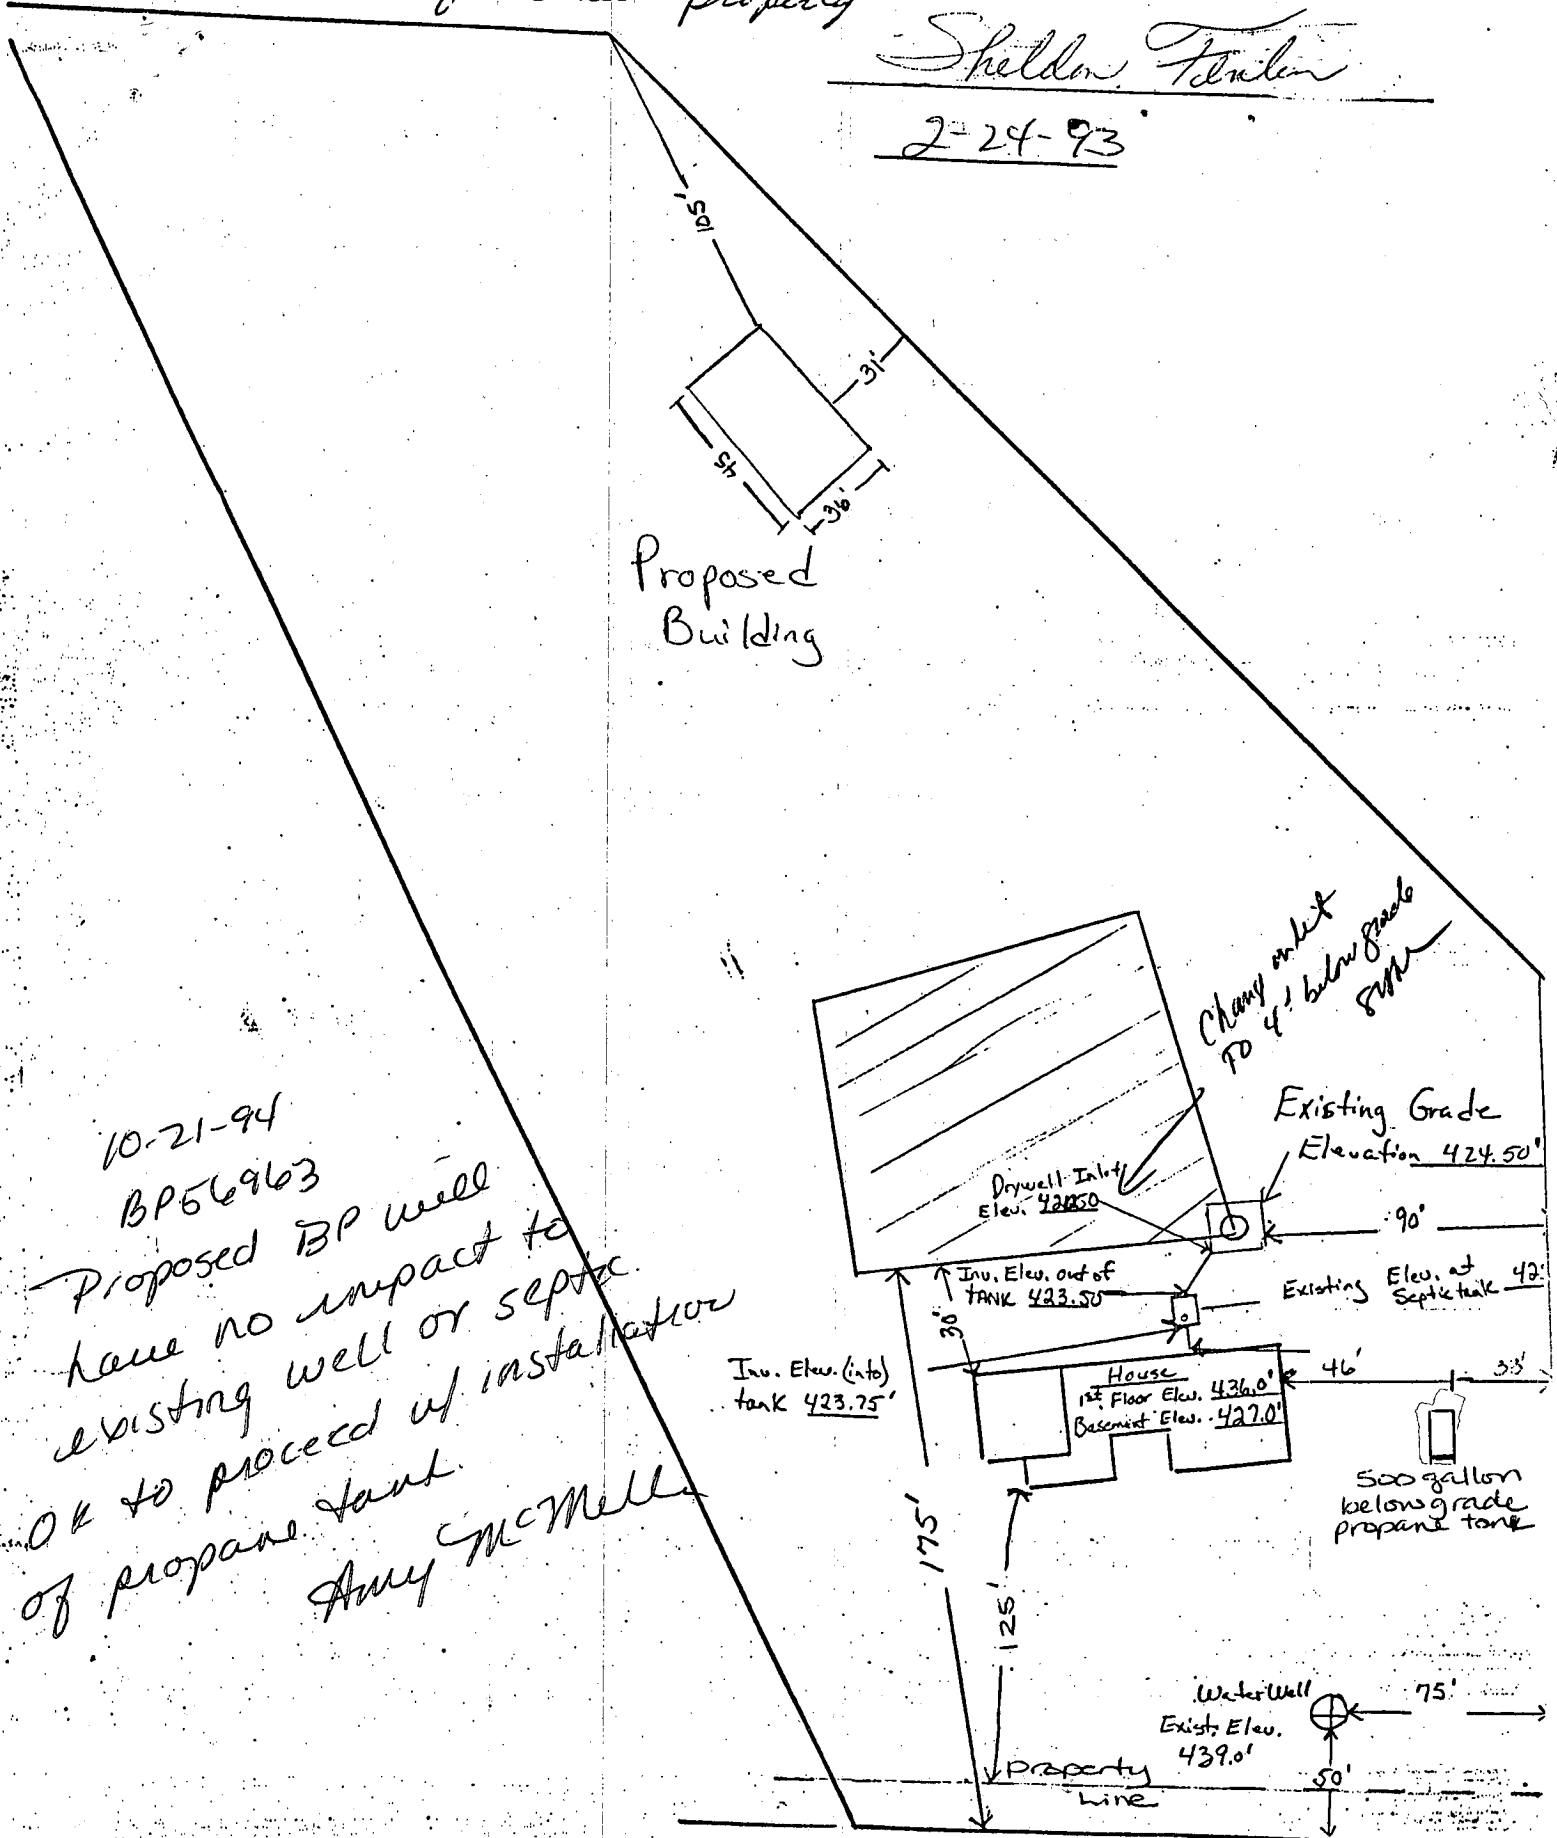 property
Sheldon
2-24-93
105'
31'
45
36'
Proposed
Building
Change inlet
TO 4' below grade
Existing Grade
Elevation 424.50'
Drywell Inlet
Elev.
90'
Inv. Elev. out of
TANK 423.50
Existing Elev. at
Septic tank 42
30'
Inv. Elev. (into)
tank 423.75'
House
1st Floor Elev. 436.0'
Basement Elev. 427.0'
46'
33'
500 gallon
below grade
propane tank
175'
125'
Water Well
Exist. Elev.
439.0'
75'
50'
Property
Line
10-21-94
BP56963
Proposed BP will
have no impact to
existing well or septic.
OK to proceed w/ installation
of propane tank.
Amy